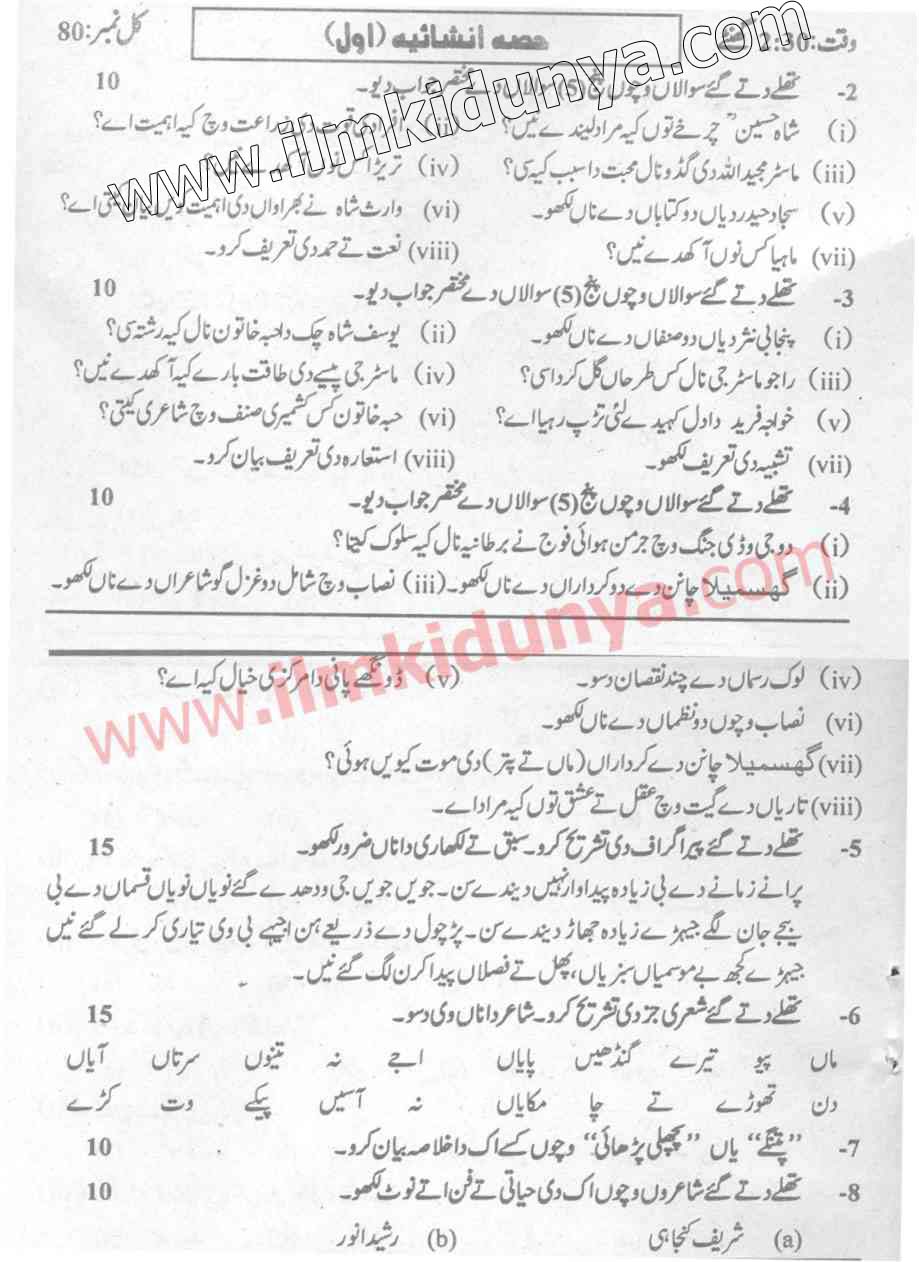 وقت:2:30 گھنٹے حصہ انشائیہ (اول) کل نمبر:80
2- تھلے دتے گئے سوالاں وچوں پنج (5) سوالاں دے مختصر جواب دیو۔ 10
(i) شاہ حسینؒ چرخے توں کیہ مراد لیندے نیں؟ (ii) افرادی قوت دی زراعت وچ کیہ اہمیت اے؟
(iii) ماسٹر مجید اللہ دی گڈو نال محبت دا سبب کیہ سی؟ (iv)
(v) سجاد حیدر دیاں دو کتاباں دے ناں لکھو۔ (vi) وارث شاہ نے بھراواں دی اہمیت کیتی اے؟
(vii) ماہیا کس نوں آکھدے نیں؟ (viii) نعت تے حمد دی تعریف کرو۔
3- تھلے دتے گئے سوالاں وچوں پنج (5) سوالاں دے مختصر جواب دیو۔ 10
(i) پنجابی نثر دیاں دو صنفاں دے ناں لکھو۔ (ii) یوسف شاہ چک دا حبہ خاتون نال کیہ رشتہ سی؟
(iii) راجو ماسٹر جی نال کس طرحاں گل کردا سی؟ (iv) ماسٹر جی پیسے دی طاقت بارے کیہ آکھدے نیں؟
(v) خواجہ فرید دا دل کہیدے لئی تڑپ رہیا اے؟ (vi) حبہ خاتون کس کشمیری صنف وچ شاعری کیتی؟
(vii) تشبیہ دی تعریف لکھو۔ (viii) استعارہ دی تعریف بیان کرو۔
4- تھلے دتے گئے سوالاں وچوں پنج (5) سوالاں دے مختصر جواب دیو۔ 10
(i) دوجی وڈی جنگ وچ جرمن ہوائی فوج نے برطانیہ نال کیہ سلوک کیتا؟
(ii) گھسمیلا چانن دے دو کرداراں دے ناں لکھو۔ (iii) نصاب وچ شامل دو غزل گو شاعراں دے ناں لکھو۔
(iv) لوک رسماں دے چند نقصان دسو۔ (v) ڈونگھے پانی دا مرکزی خیال کیہ اے؟
(vi) نصاب وچوں دو نظماں دے ناں لکھو۔
(vii) گھسمیلا چانن دے کرداراں (ماں تے پتر) دی موت کیویں ہوئی؟
(viii) تاریاں دے گیت وچ عقل تے عشق توں کیہ مراد اے۔
5- تھلے دتے گئے پیراگراف دی تشریح کرو۔ سبق تے لکھاری دا ناں ضرور لکھو۔ 15
پرانے زمانے دے بی زیادہ پیداوار نہیں دیندے سن۔ جویں جویں جی ودھدے گئے نویاں نویاں قسماں دے بی
بیجے جان لگے جیہڑے زیادہ جھاڑ دیندے سن۔ پڑچول دے ذریعے ہن اجیہے بی وی تیاری کر لے گئے نیں
جیہڑے کجھ بے موسمیاں سبزیاں، پھل تے فصلاں پیدا کرن لگ گئے نیں۔
6- تھلے دتے گئے شعری جز دی تشریح کرو۔ شاعر دا ناں وی دسو۔ 15
ماں پیو تیرے گنڈھیں پایاں اجے نہ تینوں سرتاں آیاں
دن تھوڑے تے چا مکایاں نہ آسیں پیکے وت کڑے
7- ”پتنگے“ یاں ”پچھلی پڑھائی“ وچوں کسے اک دا خلاصہ بیان کرو۔ 10
8- تھلے دتے گئے شاعروں وچوں اک دی حیاتی تے فن اتے نوٹ لکھو۔ 10
(a) شریف کنجاہی (b) رشید انور
www.ilmkidunya.com
www.ilmkidunya.com